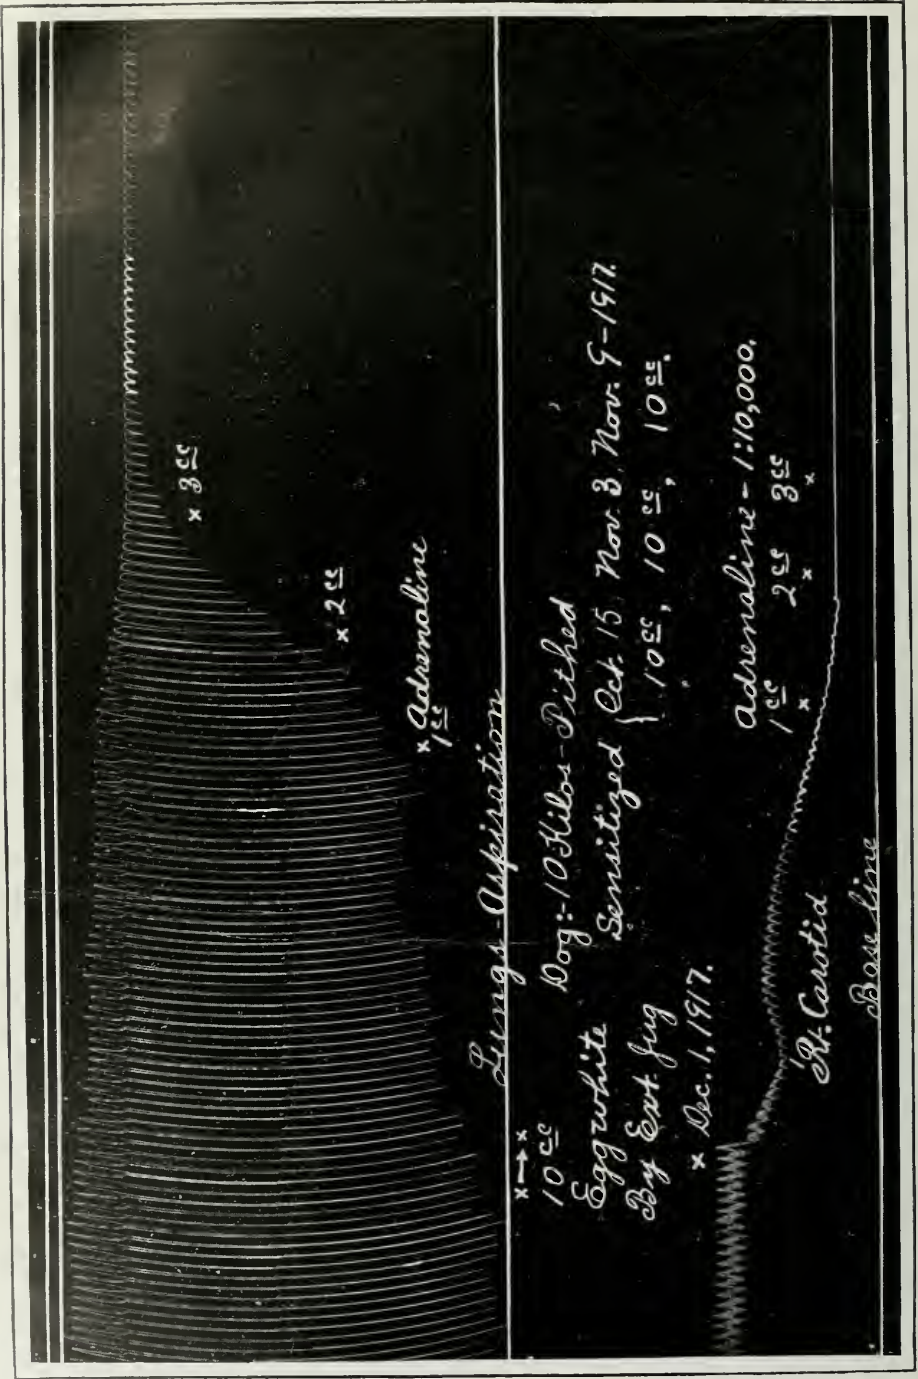 x 3 cc
x 2 cc
x Adrenaline
1 cc
Lungs-Aspiration
x→x
10 cc
Eggwhite
By Ext. Jug
x Dec. 1, 1917.
Dog:-10 Kilos-Pithed
Sensitized { Oct. 15 Nov. 3, Nov. 9-1917.
10 cc, 10 cc, 10 cc.
Adrenaline-1:10,000.
1 cc 2 cc 3 cc
x x x
Rt. Carotid
Baseline